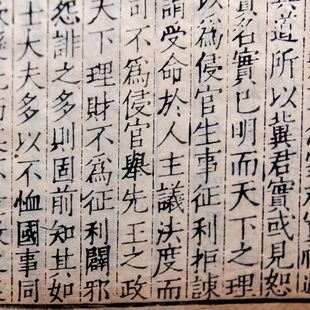 具道所以冀君實或見恕
實名實已明而天下之理
以為侵官生事征利拒諫
謂受命於人主議法度而
司不為侵官舉先王之政
天下理財不為征利闢邪
怨誹之多則固前知其如
士大夫多以不恤國事同